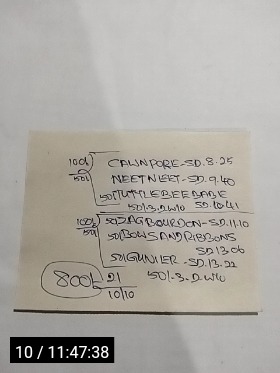 100/- CAWNPORE-SD.8.25
50/- NEETNEET-SD.9.40
50/- TUTTLEBEEBABE
50/-3.D.W10 SD.10.41
100/- 50/- DAGBOURDON-SD.11.10
50/- 50/- BOWSANDRIBBONS
SD13.06
50/- GUNIER-SD.13.22
800/- 21 50/-3.D.W10
10/10
10 / 11:47:38